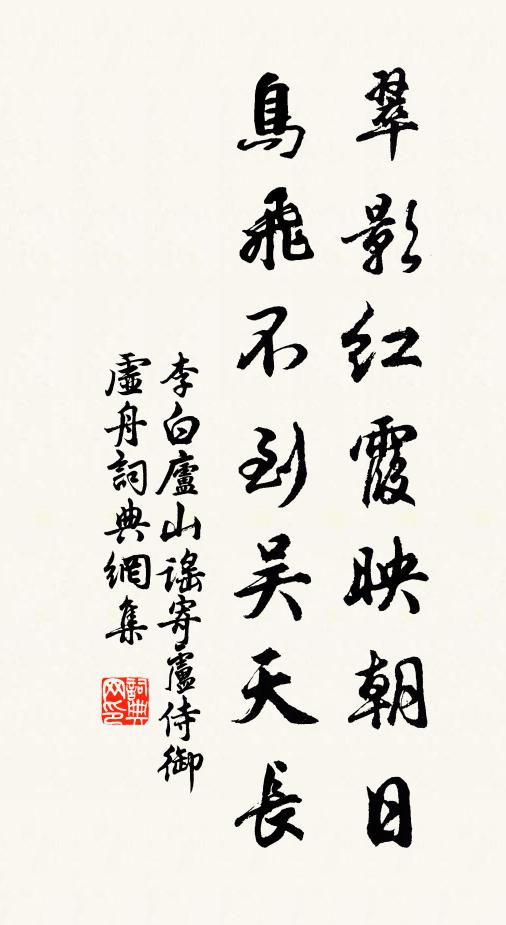 翠影红霞映朝日
鳥飛不到吴天長
李白廬山謠寄盧侍御
虛舟詞典網集
詞典网印